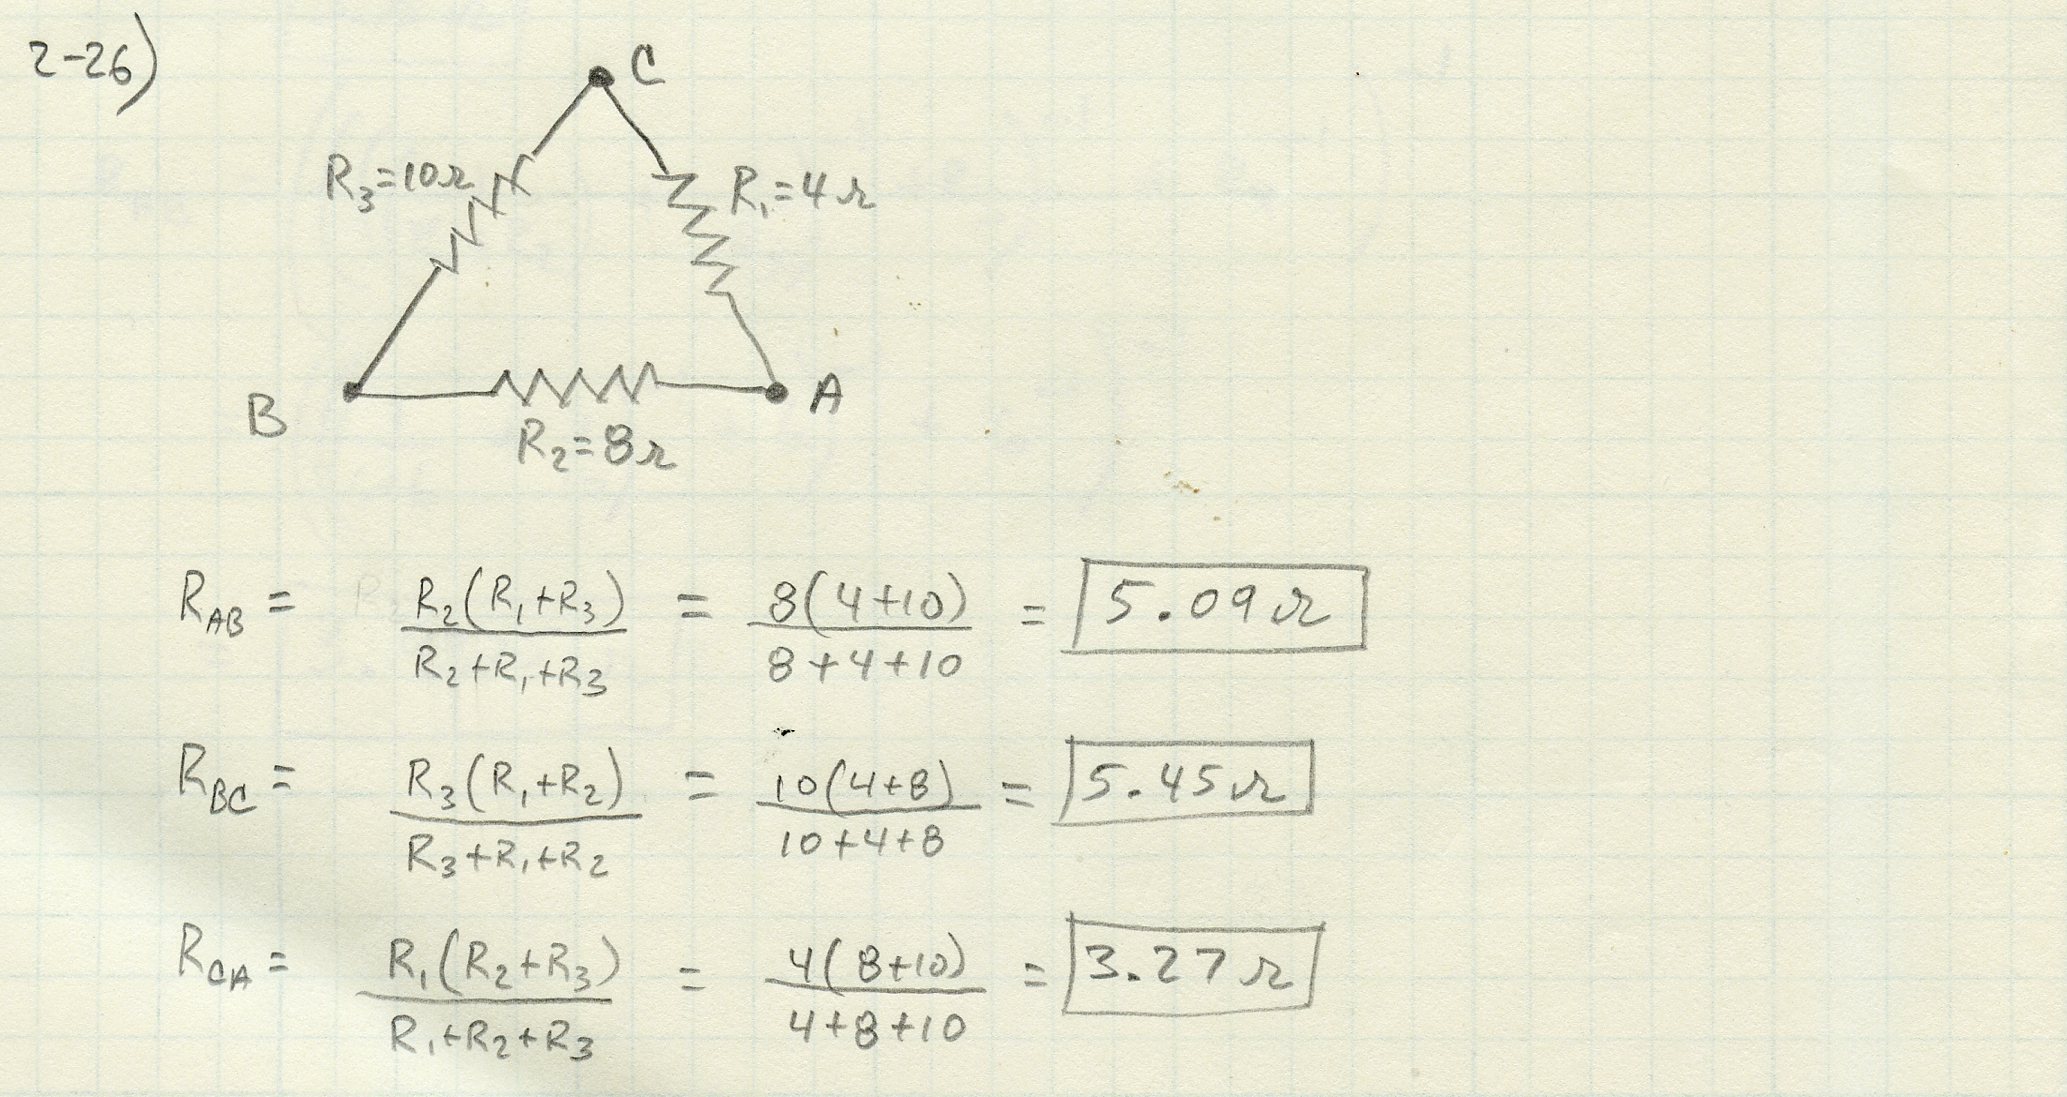 2-26)
C
R₃=10Ω
R₁=4Ω
B
A
R₂=8Ω
R_AB = R₂(R₁+R₃) / R₂+R₁+R₃ = 8(4+10) / 8+4+10 = 5.09Ω
R_BC = R₃(R₁+R₂) / R₃+R₁+R₂ = 10(4+8) / 10+4+8 = 5.45Ω
R_CA = R₁(R₂+R₃) / R₁+R₂+R₃ = 4(8+10) / 4+8+10 = 3.27Ω